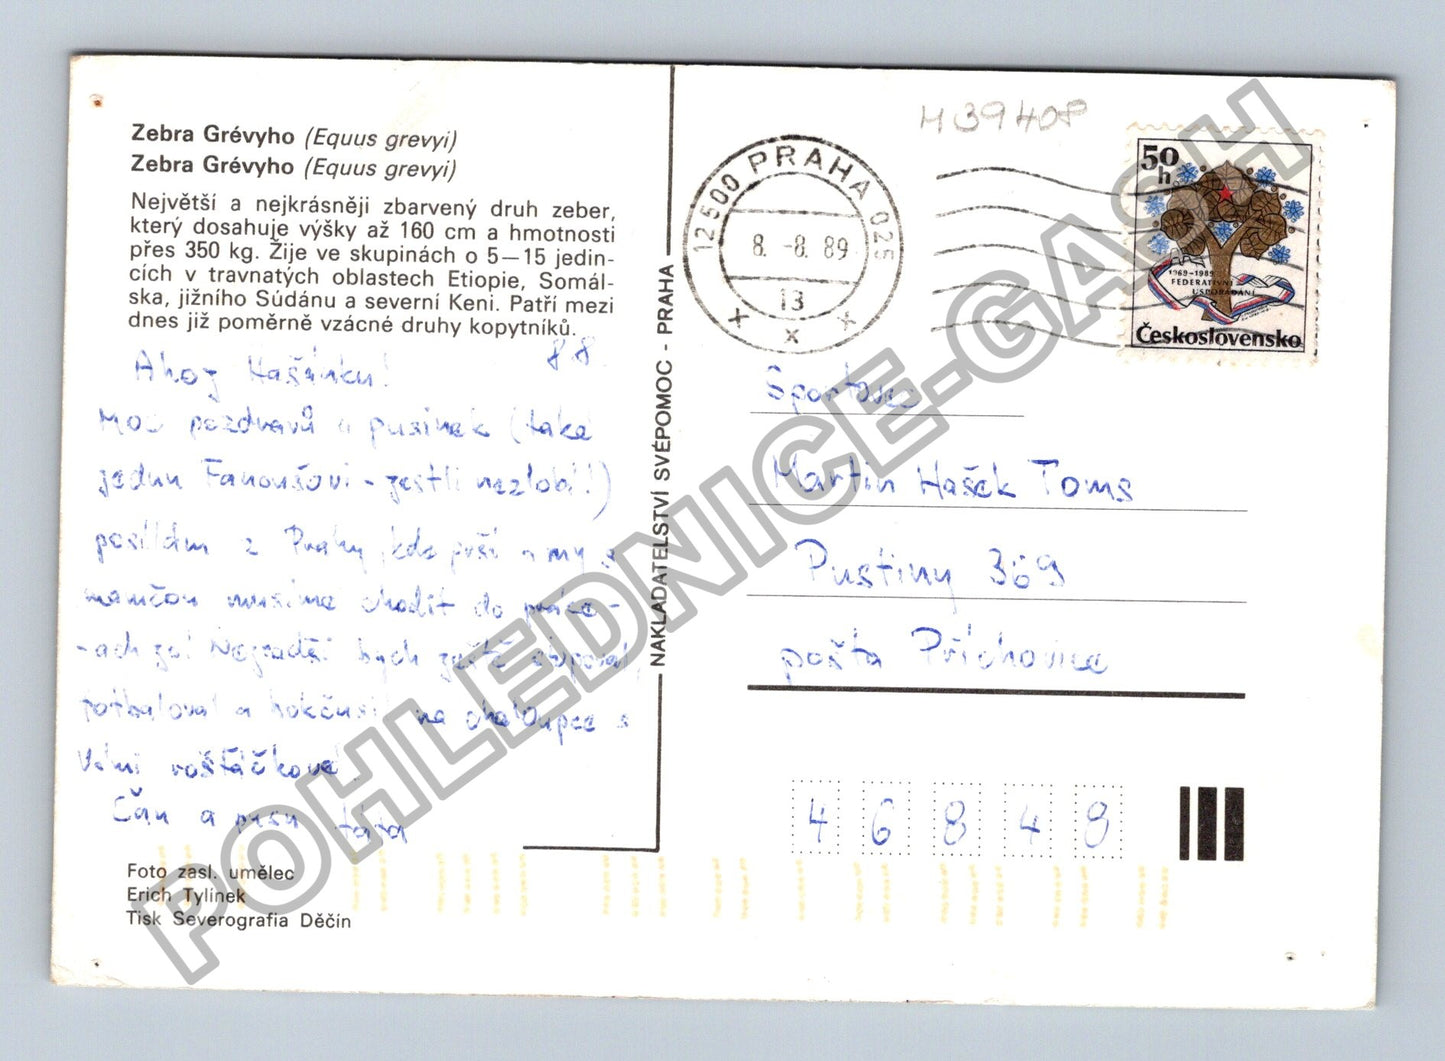 Zebra Grévyho (Equus grevyi)
Zebra Grévyho (Equus grevyi)
Největší a nejkrásněji zbarvený druh zeber,
který dosahuje výšky až 160 cm a hmotnosti
přes 350 kg. Žije ve skupinách o 5—15 jedin-
cích v travnatých oblastech Etiopie, Somál-
ska, jižního Súdánu a severní Keni. Patří mezi
dnes již poměrně vzácné druhy kopytníků.
8.8.
Ahoj Hašánku!
Moc pozdravů a pusinek (také
jednu Fanoušovi - jestli nezlobí!)
posílám z Prahy, kde prší a my s
mamčou musíme chodit do práce-
-ach jo! Nejraději bych ještě
fotbaloval a na chaloupce s
Vámi rošťáčkové!
Čau a pusu táta
Foto zasl. umělec
Erich Tylínek
Tisk Severografia Děčín
NAKLADATELSTVÍ SVÉPOMOC - PRAHA
M39408
12500 PRAHA 025
8. -8. 89
13
x x x
50
h
1969-1989
FEDERATIVNÍ
USPOŘÁDÁNÍ
Československo
Martin Hašek Toms
Pustiny 369
pošta Příchovice
46848
POHLEDNICE-GASH